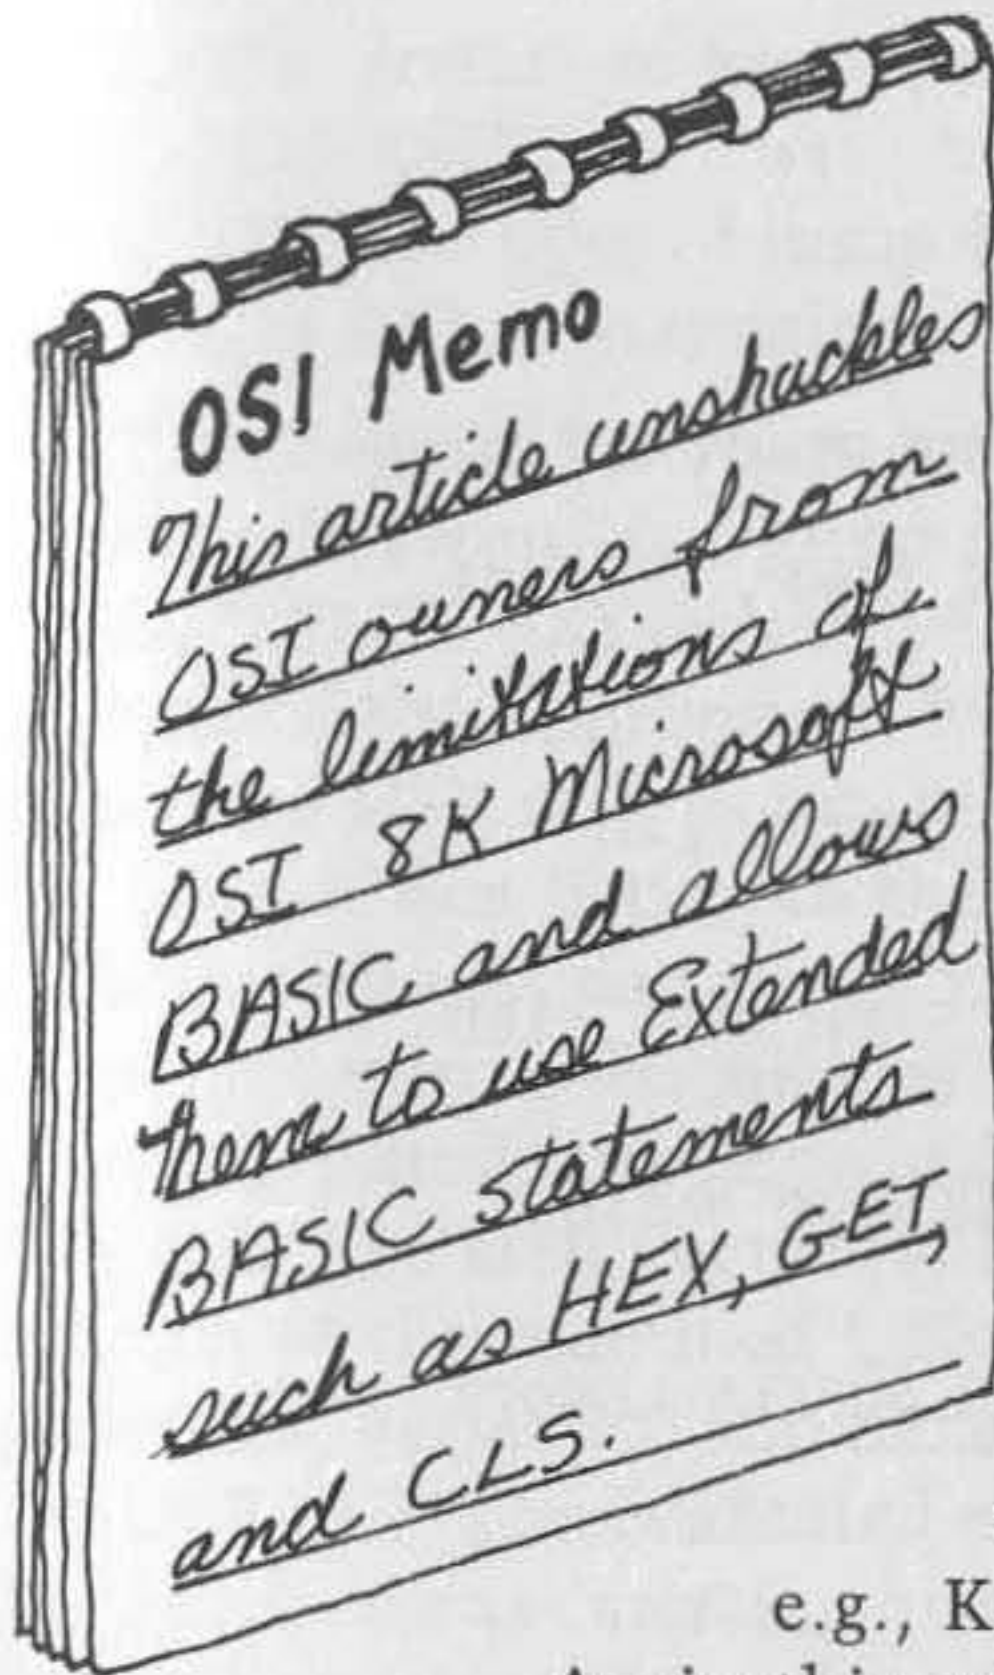 OSI Memo
This article unshackles
OSI owners from
the limitations of
OSI 8K Microsoft
BASIC and allows
them to use Extended
BASIC statements
such as HEX, GET,
and CLS.
e.g., K